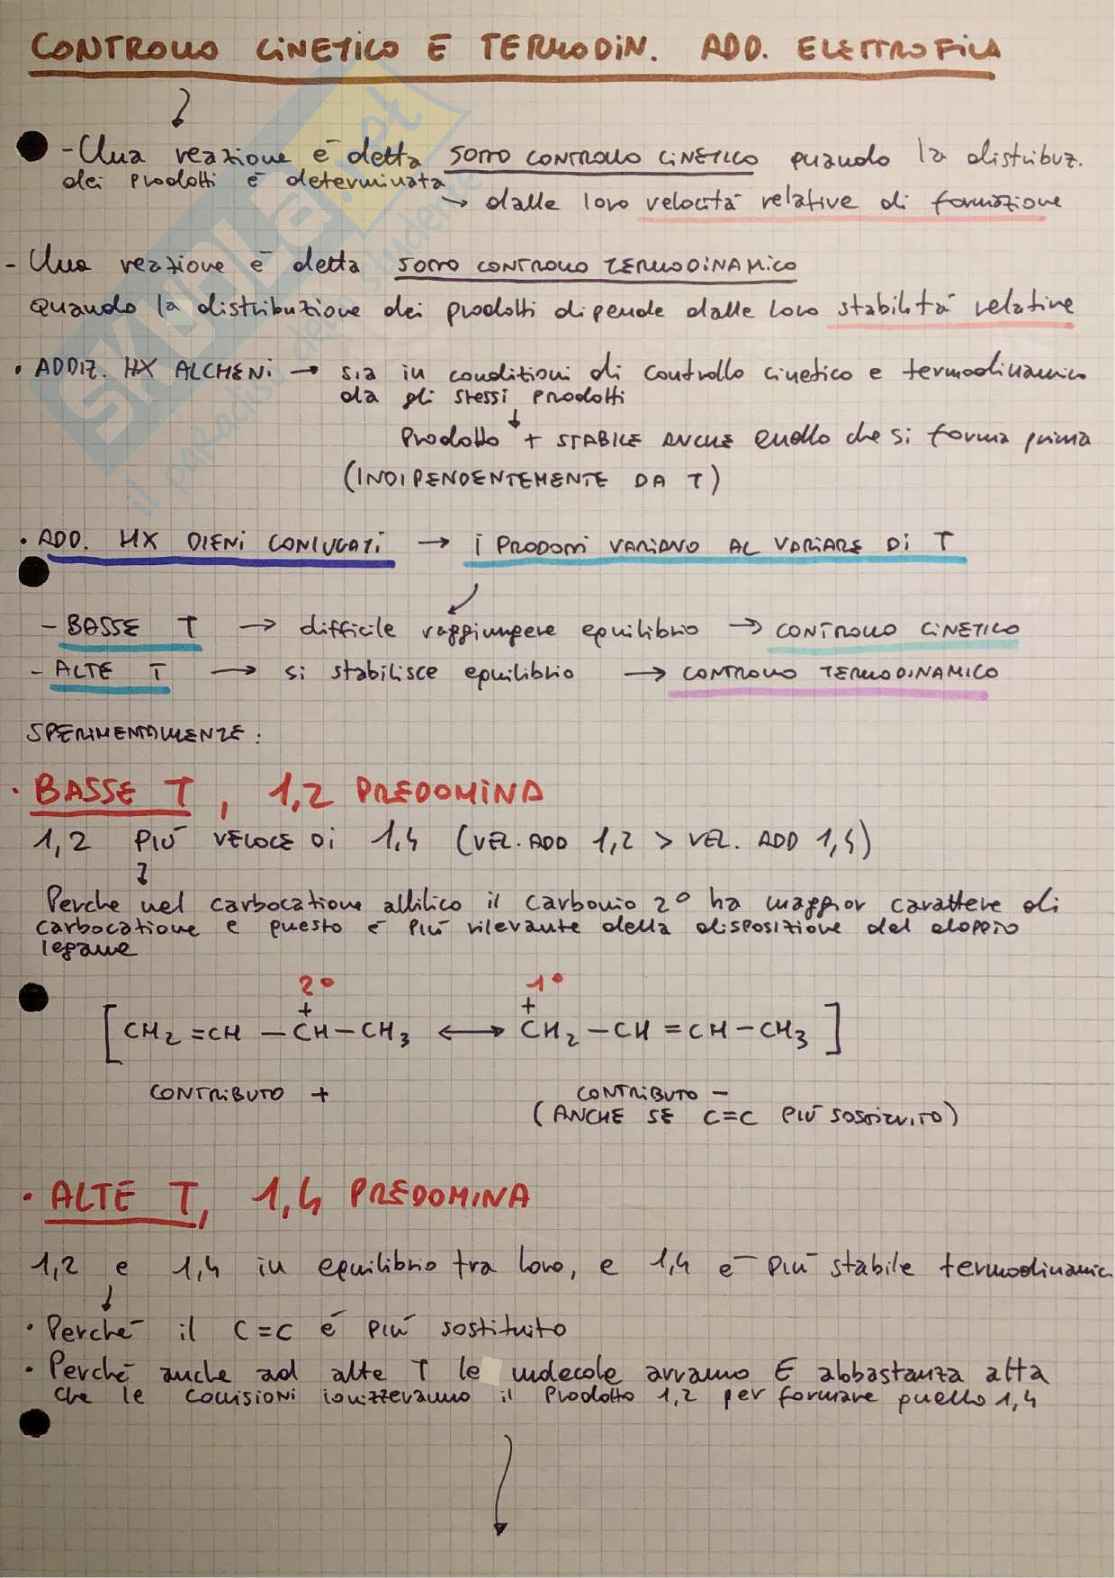 CONTROLLO CINETICO E TERMODIN. ADD. ELETTROFILA
- Una reazione è detta SOTTO CONTROLLO CINETICO quando la distribuz.
dei prodotti è determinata
→ dalle loro velocità relative di formazione
- Una reazione è detta SOTTO CONTROLLO TERMODINAMICO
quando la distribuzione dei prodotti dipende dalle loro stabilità relative
• ADDIZ. HX ALCHENI → sia in condizioni di controllo cinetico e termodinamico
da gli stessi prodotti
↓
Prodotto + STABILE ANCHE quello che si forma prima
(INDIPENDENTEMENTE DA T)
• ADD. HX DIENI CONIUGATI → I PRODOTTI VARIANO AL VARIARE DI T
- BASSE T → difficile raggiungere equilibrio → CONTROLLO CINETICO
- ALTE T → si stabilisce equilibrio → CONTROLLO TERMODINAMICO
SPERIMENTALMENTE:
• BASSE T, 1,2 PREDOMINA
1,2 PIÙ VELOCE DI 1,4 (VEL. ADD 1,2 > VEL. ADD 1,4)
Perche nel carbocatione allilico il carbonio 2° ha maggior carattere di
carbocatione e questo è più rilevante della disposizione del doppio
legame
2° 1°
+ +
[CH2=CH-CH-CH3 ↔ CH2-CH=CH-CH3]
CONTRIBUTO + CONTRIBUTO -
(ANCHE SE C=C PIÙ SOSTITUITO)
• ALTE T, 1,4 PREDOMINA
1,2 e 1,4 in equilibrio tra loro, e 1,4 è più stabile termodinamic
↓
• Perchè il C=C è più sostituito
• Perchè anche ad alte T le molecole avranno E abbastanza alta
che le collisioni ionizzeranno il prodotto 1,2 per formare quello 1,4
SKUOLA.net
il paradiso dello studente